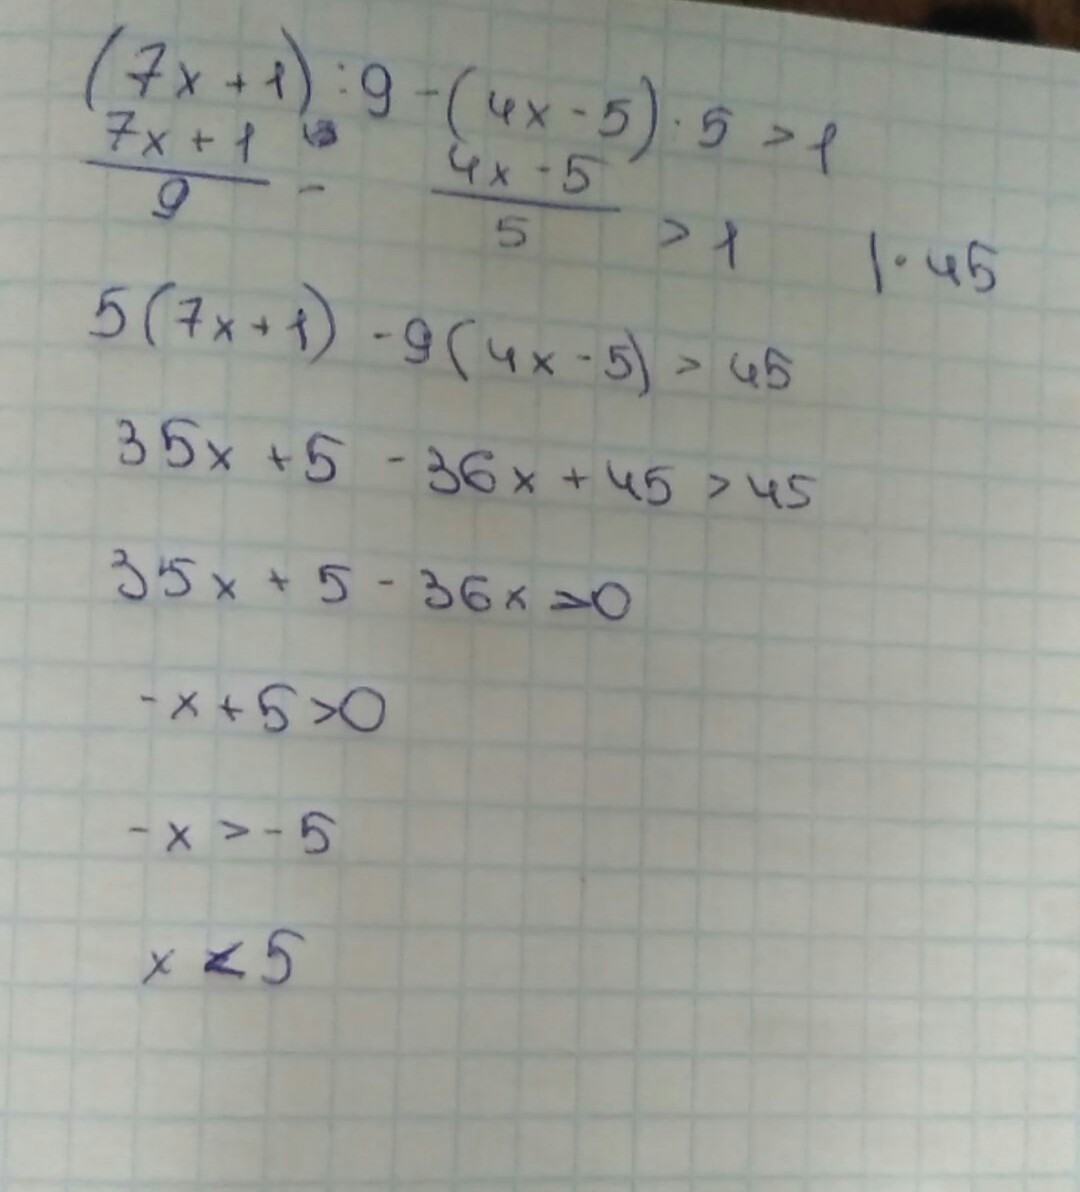 (7x+1):9-(4x-5)·5>1
(7x+1)/9 - (4x-5)/5 > 1 |·45
5(7x+1)-9(4x-5)>45
35x+5-36x+45>45
35x+5-36x>0
-x+5>0
-x>-5
x<5